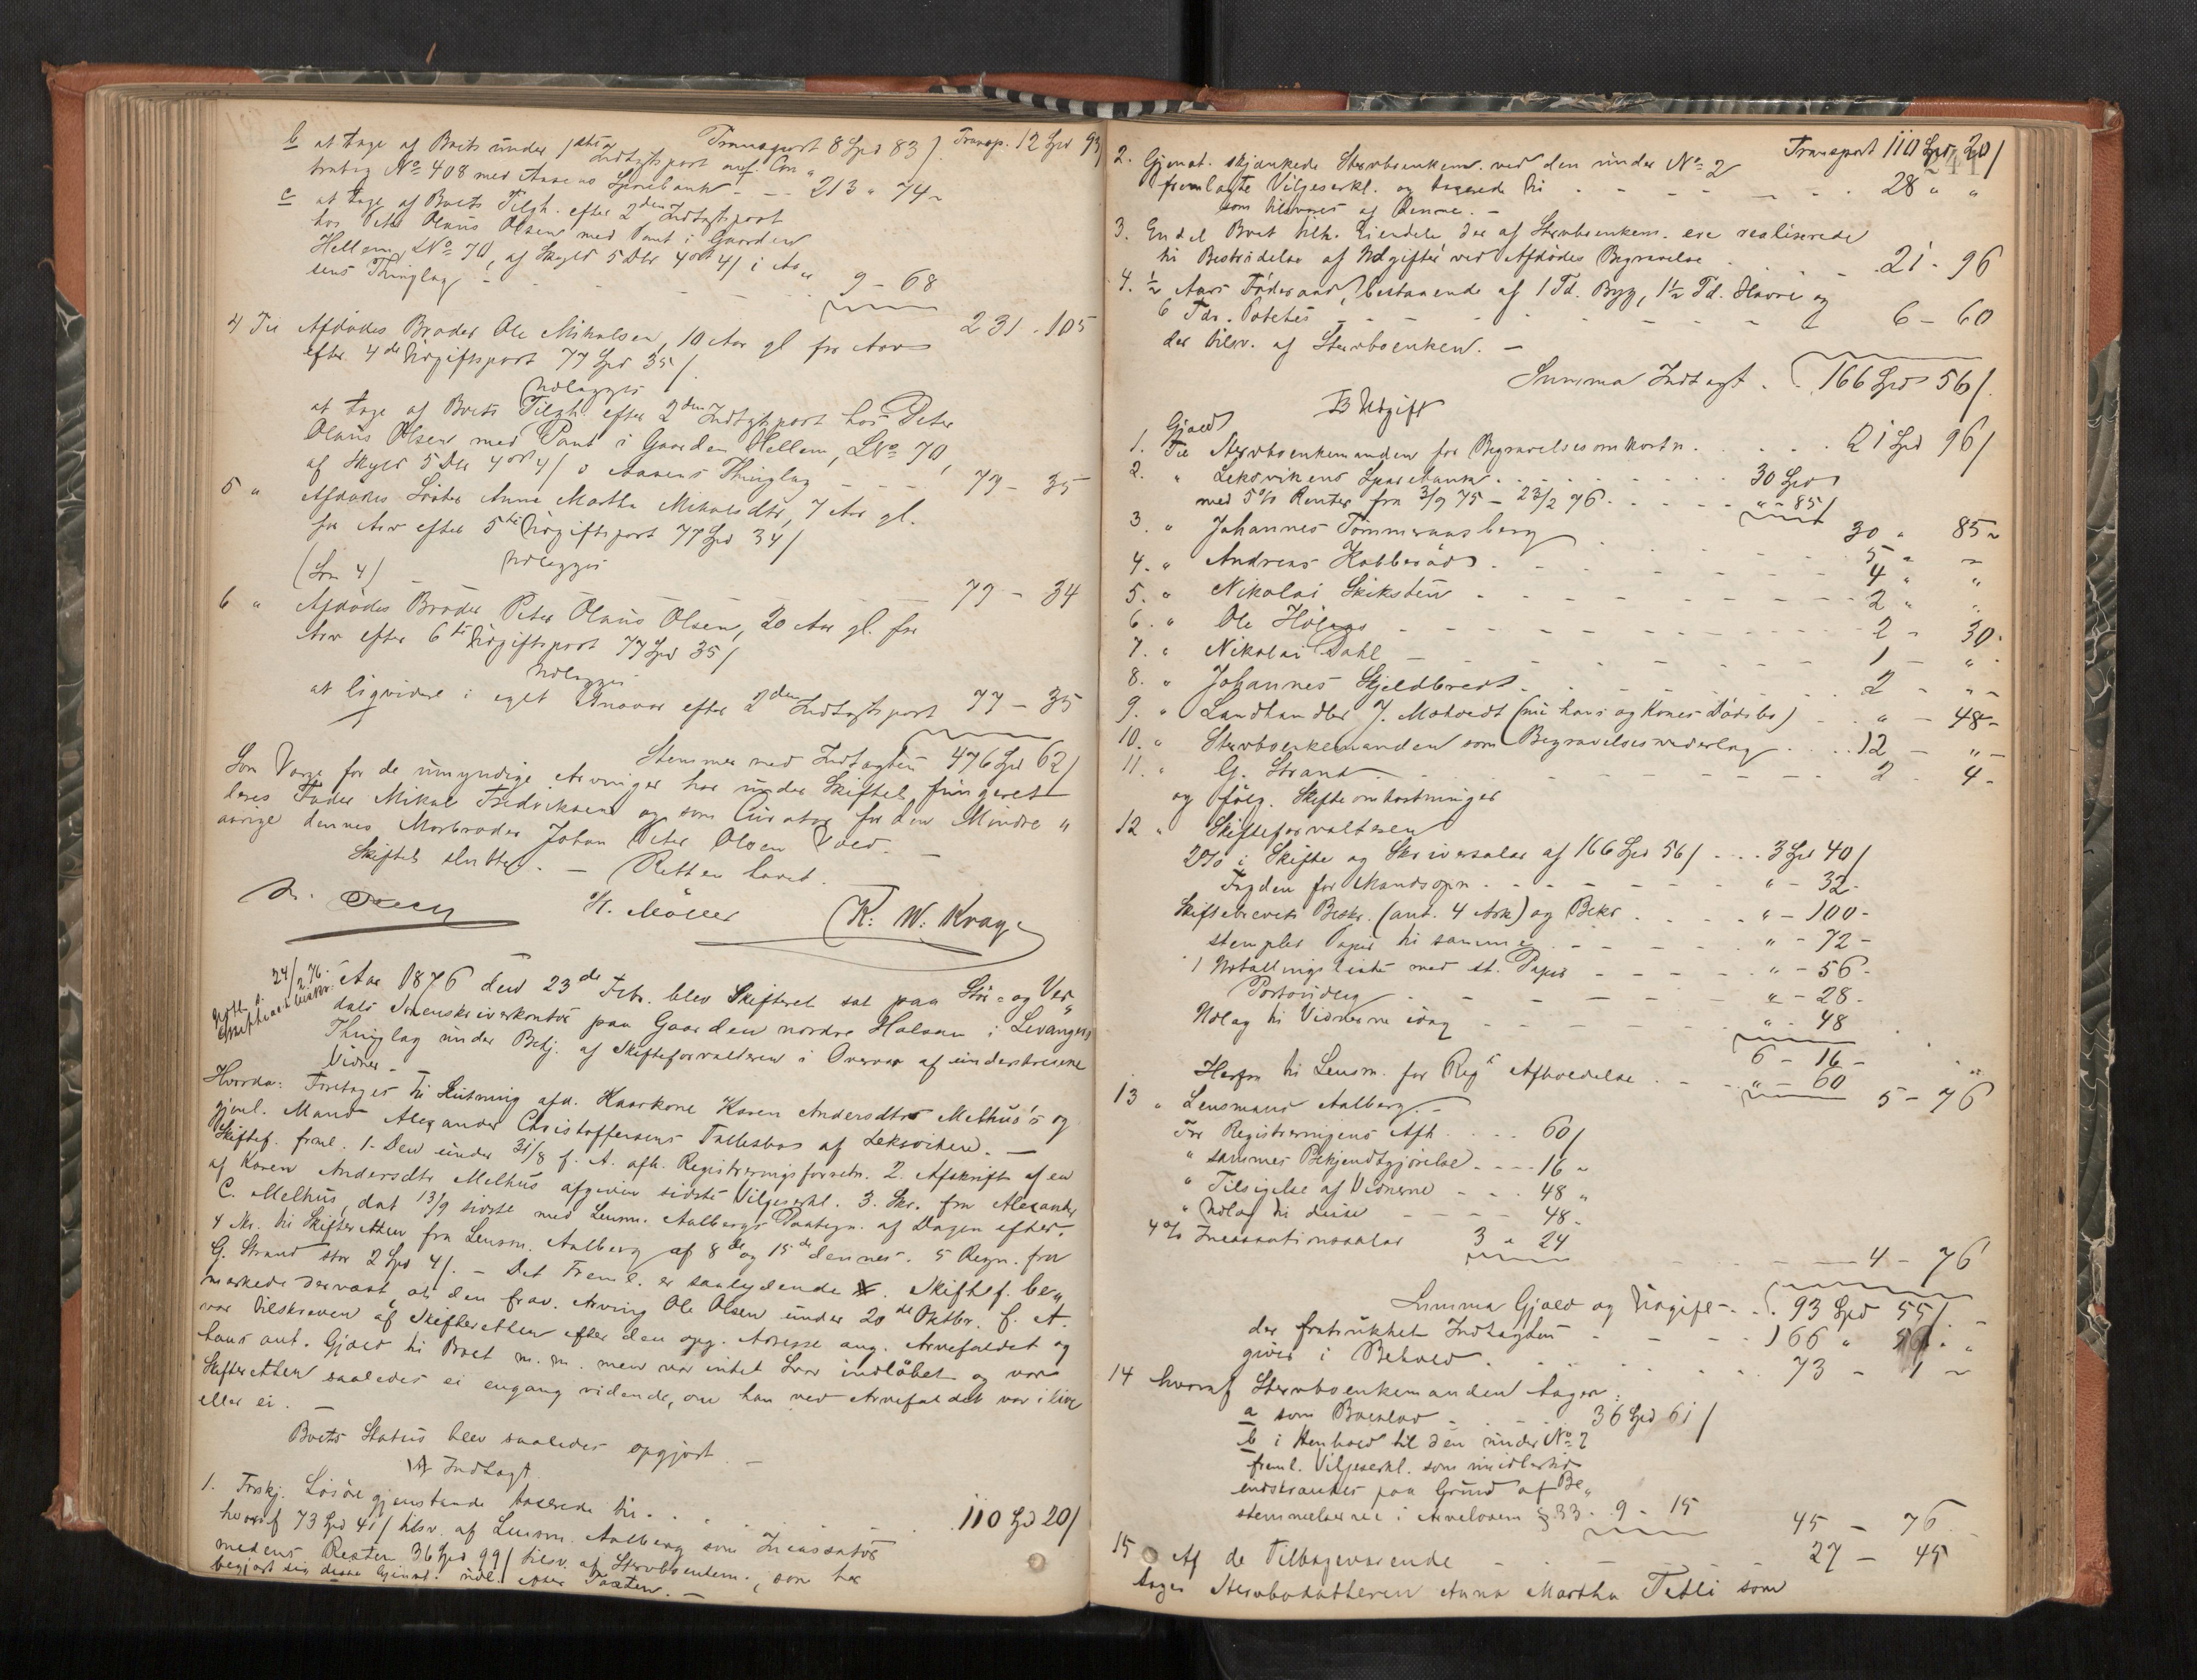 Transport 8 Spd 83 / Transp. 12 Spd 93/
b at tage af Boets under 1ste Indtægtspost anf. Con„
trabog No 408 med Aasens Sparebank - - - 213 " 74 "
c at tage af Boets Tilgh. efter 2den Indtægtspost
hos Peter Olaus Olsen med Pant i Gaarden
Hellem, LNo 70, af Skyld 5 Dlr 4 ort 4/ i Aa„
sens Thinglag - - - 9 - 68
231 - 105
4 Til Afdødes Broder Ole Mikalsen, 10 Aar gl for Arv
efter 4de Udgiftspost 77 Spd 35/
Udlægges
at tage af Boets Tilgh. efter 2den Indtægtspost hos Peter
Olaus Olsen med Pant i Gaarden Hellem, LNo 70,
af Skyld 5 Dlr 4 ort 4/ i Aasens Thinglag - - - 77 - 35
5 " Afdødes Søster Anne Martha Mikalsdtr, 7 Aar gl.
for Arv efter 5te Udgiftspost 77 Spd 34/
Udlægges
(Som 4) - - - 77 - 34
6 " Afdødes Broder Peter Olaus Olsen, 20 Aar gl. for
Arv efter 6te Udgiftspost 77 Spd 35/
Udlægges
at liqvidere i eget Ansvar efter 2den Indtægtspost 77 - 35
Stemmer med Indtægten 476 Spd 62/
Som Værge for de umyndige Arvinger har under Skiftet fungeret
deres Fader Mikal Fredriksen og som Curator for den Mindre„
aarige dennes Morbroder Johan Peter Olsen
Skiftet sluttet. - Retten hævet.
H. Möller K. W. Krag
24/2 76.
Aar 1876 den 23de Febr. blev Skifteret sat paa Stør- og Vær„
dals Sorenskriverkontor paa Gaarden nordre Halsan i Levangers
Thinglag under Betj. af Skifteforvalteren i Overvær af underskrevne
Vidner -
Hvorda: Foretages til Slutning afd. Kaarkone Karen Andersdtr Melhus's og
gjenl. Mand Alexander Christoffersens Fællesbo af Leksviken. -
Skiftef. freml. 1. Den under 31/8 f. A. afh. Registreringsforretn. 2. Afskrift af en
af Karen Andersdtr Melhus afgiven sidste Viljeserkl. 3. Skr. fra Alexander
C. Melhus, dat 13/9 sidste med Lensm. Aalbergs Paategn. af Dagen efter.
4 Skr. til Skifteretten fra Lensm. Aalberg af 8de og 15de dennes. 5 Regn. fra
G. Strand stor 2 Spd 4/. - Det Freml. er saalydende . Skiftef. be„
mærkede dernæst, at den frav. Arving Ole Olsen under 20de Oktbr. f. A.
var tilskreven af Skifteretten efter den opg. Adresse ang. Arvefaldet og
hans ant. Gjæld til Boet m. m. men var intet Svar indløbet og var
Skifteretten saaledes ei engang vidende, om han ved Arvefaldet var i live
eller ei. -
Boets Status blev saaledes opgjort -
A Indtægt.
1. Forskj. Løsøregjenstande taxerede til . . . 110 Spd 20/
hvoraf 73 Spd 41/ tilsv. af Lensm. Aalberg som Incassator
medens Resten 36 Spd 99/ tilsv. af Stervboenkem., som har
begjært sig disse Gjenst. udl. efter Taxten. -
Transport 110 Spd 20/
2. Gjenst. skjænkede Stervboenkem. ved den under No 2
fremlagte Viljeserkl. og taxerede til - - - 28 " "
som tilsvares af Denne. -
3. Endel Boet tilh. Eiendele der af Stervboenkem. ere realiserede
til Bestridelse af Udgifter ved Afdødes Begravelse - - - 21 - 96
4. ½ Aars Føderaad, bestaaende af 1 Td. Byg, 1½ Td. Havre og
6 Tdr. Potetes - - - 6 - 60
der tilsv. af Stervboenkem. -
Summa Indtægt . . 166 Spd 56/.
B Udgift
Gjæld
1. Til Stervboenkemanden for Begravelsesomkostn. . . . 21 Spd 96/
2. " Leksvikens Sparebank . . . 30 Spd
med 5% Renter fra 3/7 75 - 23/2 76 . . . " - 85/
30 " 85 "
3. " Johannes Tømmeraasberg . . . 5 " "
4. " Andreas Kobberød . . . 4 " "
5. " Nikolai Skiksten - - - 2 " "
6. " Ole - - - 2 - 30 -
7. " Nikolai Dahl - - - 1 - "
8. " Johannes Skjeldbredt - - - 2 - " -
9. " Landhandler J. Mohvedt (nu hans og Kones Dødsbo) - - " - 48 -
10. " Stervboenkemanden som Begravelsesvederlag . . . 12 - " -
11. " G. Strand . . . 2 - 4 -
og følg. Skifteomkostninger
12 " Skifteforvalteren
2% i Skifte og Skriversalær af 166 Spd 56/ . . . 3 Spd 40/
Fogden for Mandsopn. . . . " - 32 -
Skiftebrevets Beskr. (ant. 4 Ark) og Bekr . . . " - 100 -
stemplet Papir til samme - - - " - 72 -
1 Udtællingsliste med st. Papir - - - " - 56 -
Portoudlæg - - - " - 28 -
Udlæg til Vidnerne idag - - - " - 48
6 - 16 -
Herfra til Lensm. for Regs Afholdelse . . . " - 60
5 - 76
13 " Lensmand Aalberg. -
For Registreringens Afh . . . 60/
" sammes Bekjendtgjørelse - - - 16 "
" Tilsigelse af Vidnerne - - - 48 "
" Udlæg til disse - - - 48 -
4% Incassationssalær 3 " 24
4 - 76
Summa Gjæld og Udgift - . 93 Spd 55/
der fratrukket Indtægten - - - 166 " 56 "
giver i Behold . . . 73 - 1 "
14 hvoraf Stervboenkemanden tager:
a som Boeslod - - - 36 Spd 61/
b i Henhold til den under No 2
freml. Viljeserkl. som imidlertid
indskrænkes paa Grund af Be„
stemmelserne i Arveloven § 33 - 9 - 15
45 - 76
15 Af de Tilbageværende - - - 27 - 45
tager Stervbodatteren Anna Martha Tetli som